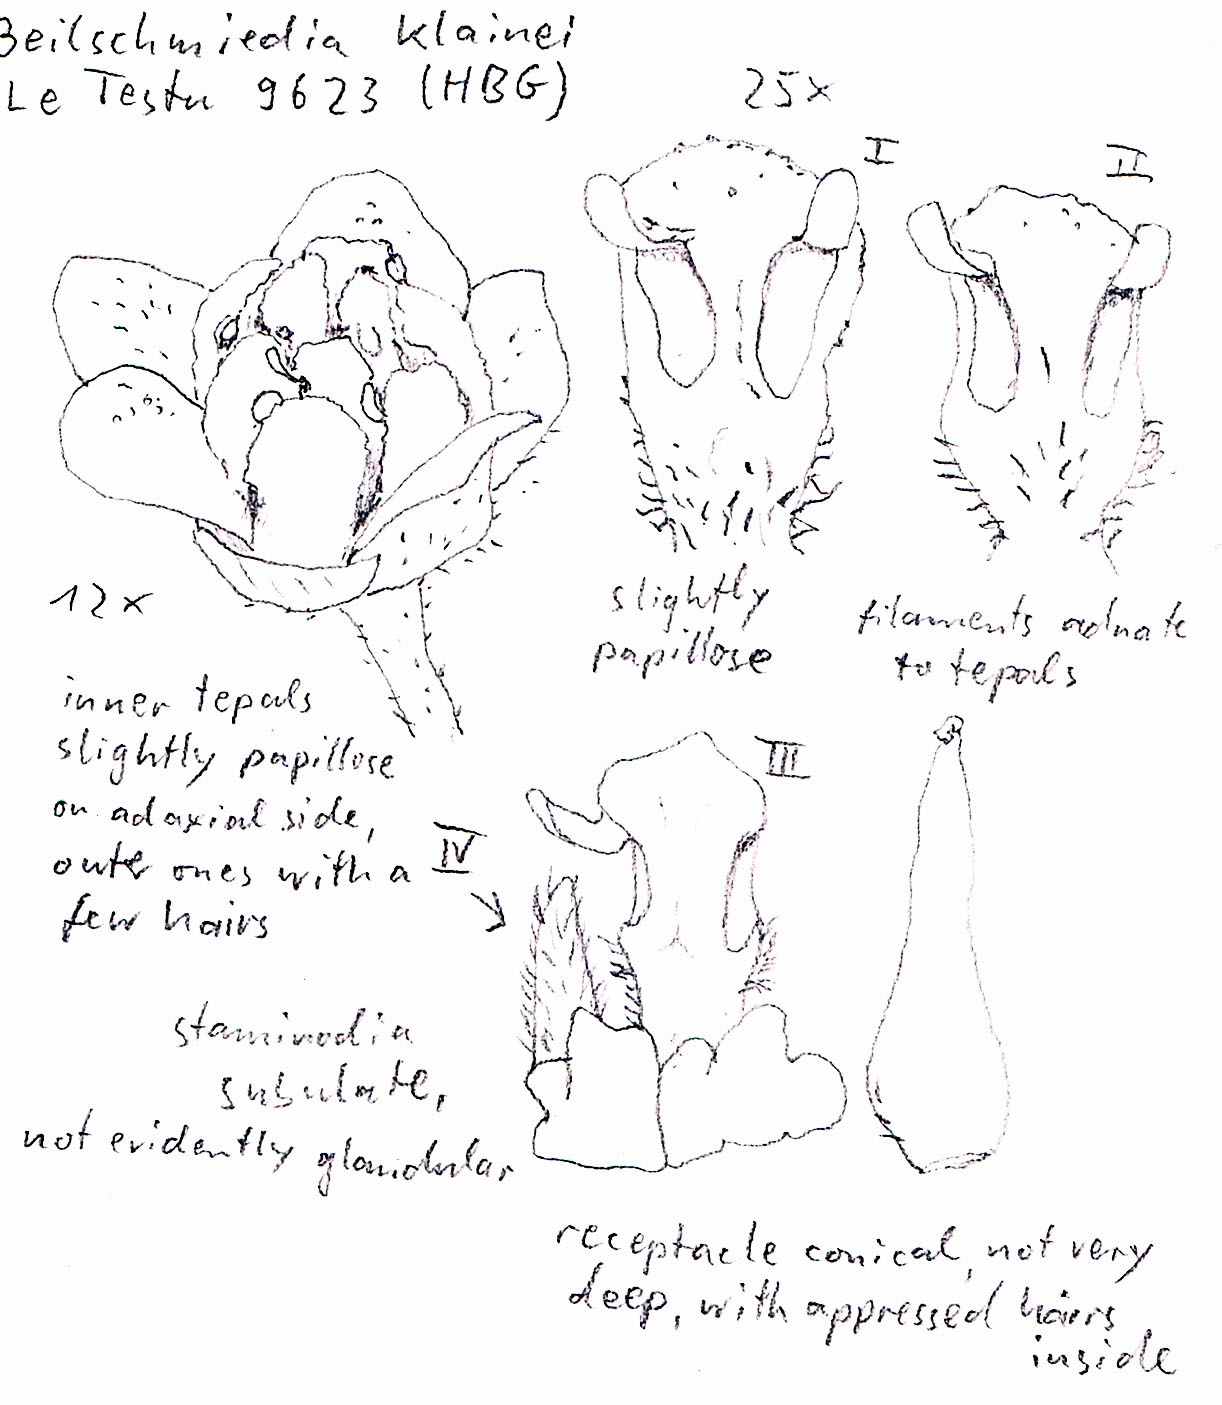 Beilschmiedia klainei
Le Testu 9623 (HBG)
25x
I
II
12x
slightly
papillose
filaments adnate
to tepals
inner tepals
slightly papillose
on adaxial side,
outer ones with a
few hairs
III
IV
staminodia
subulate,
not evidently glandular
receptacle conical, not very
deep, with appressed hairs
inside